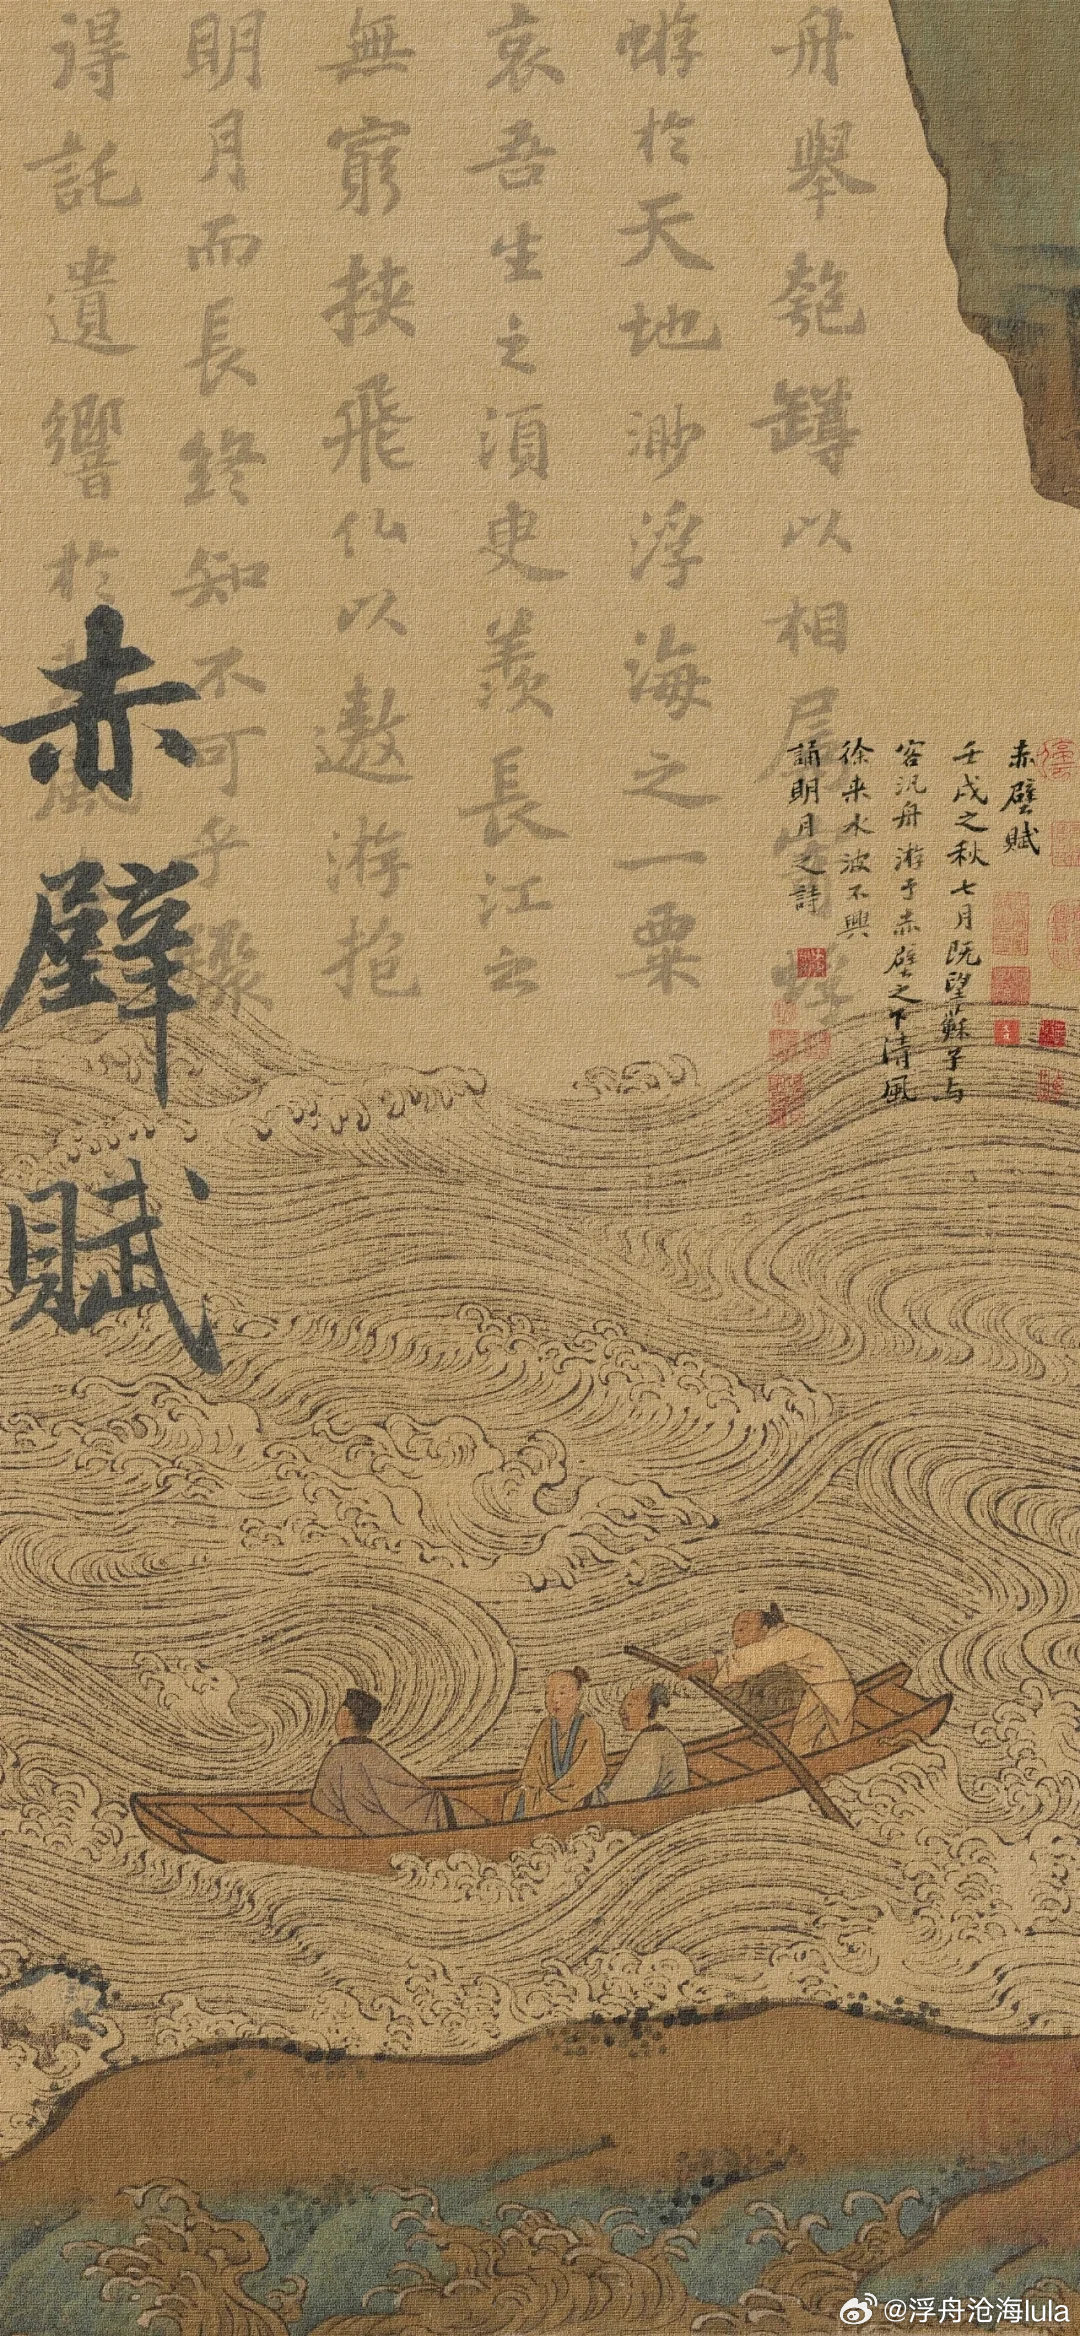 舟舉匏罇以相屬寄蜉
蝣於天地渺浮海之一粟
哀吾生之須臾羨長江之
無窮挾飛仙以遨游抱
明月而長終知不可乎驟
得託遺響於悲風
赤壁賦
赤壁賦
壬戌之秋七月既望蘇子与
客汎舟游于赤壁之下清風
徐来水波不興
誦明月之詩
@浮舟沧海lula